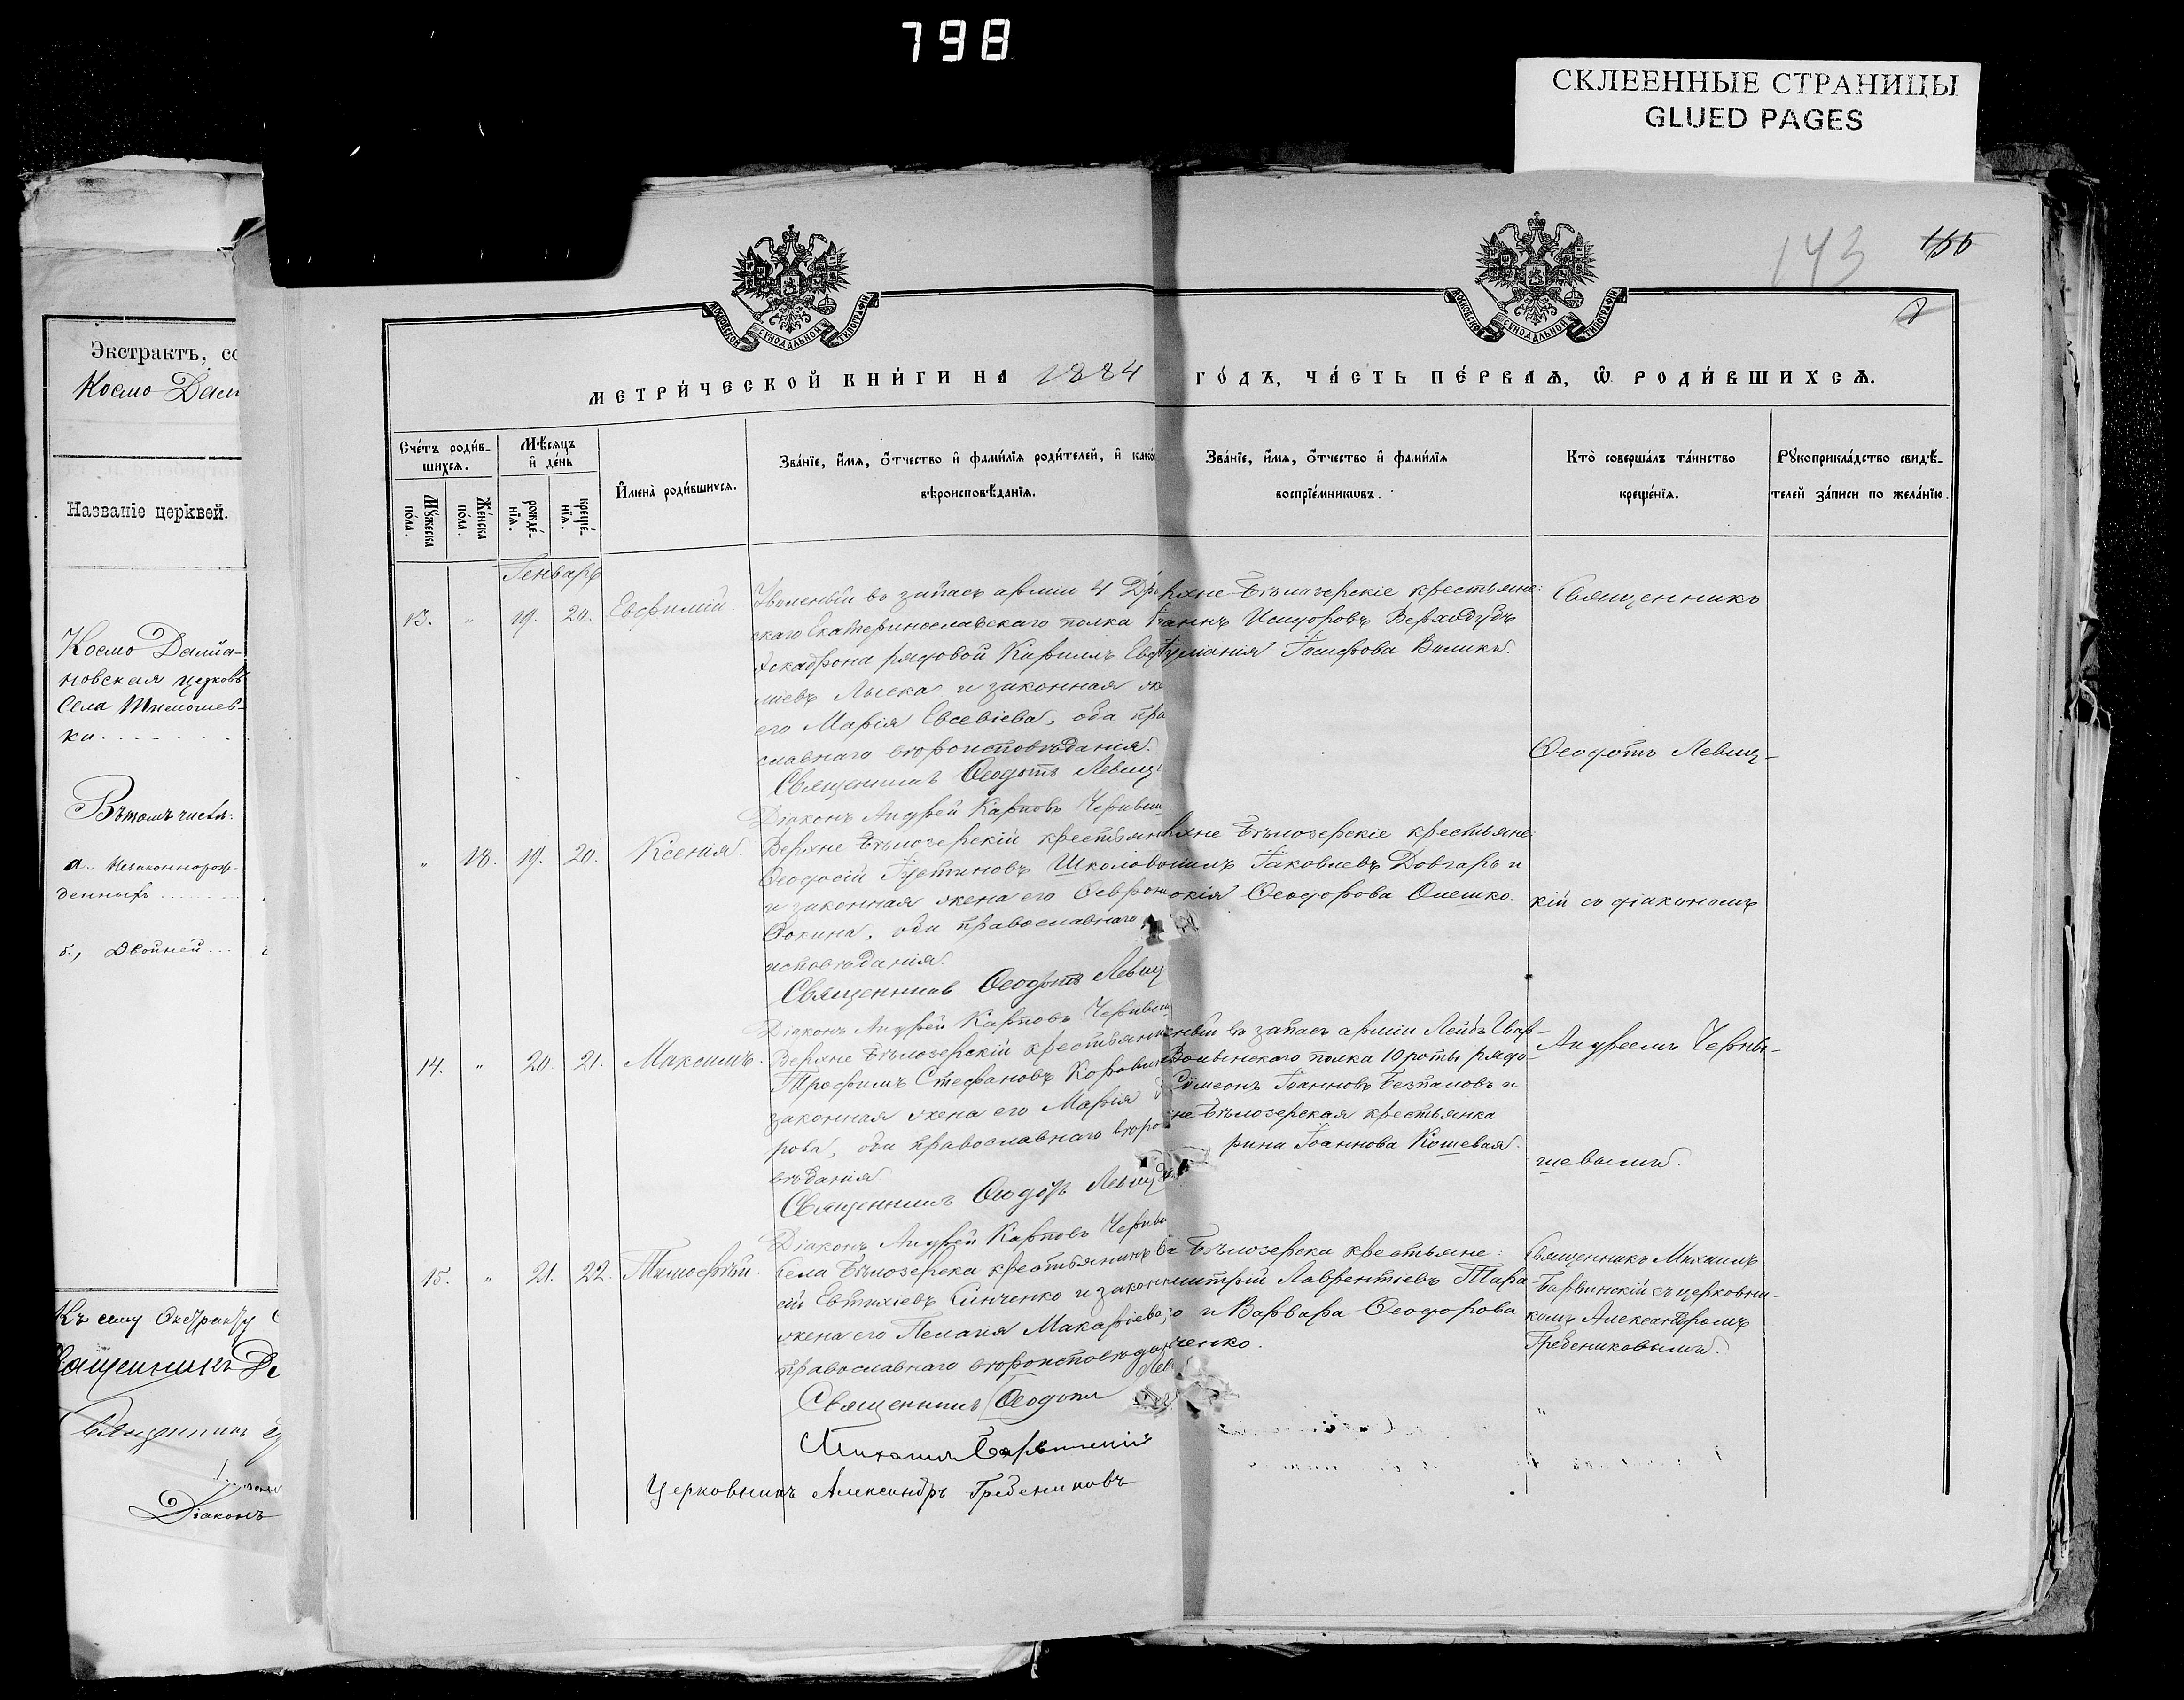 798
СКЛЕЕННЫЕ СТРАНИЦЫ
GLUED PAGES
143
155
Экстрактъ, со
Космо Дами
Названіе церквей.
Космо Даміа-
новская церковь
Села Тимошев-
ки
Въ томъ числѣ:
а. Незаконнорож-
денныхъ
б., Двойней
Къ сему Экстракту
Священникъ
Діаконъ
МОСКОВСКОЙ СѴНОДАЛЬНОЙ ТИПОГРАФІИ
МОСКОВСКОЙ СѴНОДАЛЬНОЙ ТИПОГРАФІИ
МЕТРИ́ЧЕСКОЙ КНИ́ГИ НА 1884 ГО́ДЪ, ЧА́СТЬ ПЕ́РВАѦ, Ѡ РОДИ́ВШИХСѦ.
Сче́тъ роди́в-
шихсѧ.
Мꙋ́жеска по́ла.
Же́нска по́ла.
Мѣ́сѧцъ и҆ де́нь
рожде́-нїѧ.
креще́-нїѧ.
И҆мена̀ роди́вшихсѧ.
Зва́нїе, и҆́мѧ, ѻ҆́тчество и҆ фами́лїѧ роди́телей, и҆ како
вѣроисповѣ́данїѧ.
Зва́нїе, и҆́мѧ, ѻ҆́тчество и҆ фами́лїѧ
воспрїе́мникѡвъ.
Кто̀ соверша́лъ та́инство
креще́нїѧ.
Рꙋкоприкла́дство свидѣ́-
телей за́писи по жела́нїю.
Генварь
13. " 19. 20. Евфимій.
Уволенный въ запасъ арміи 4 Др
скаго Екатеринославскаго полка
Эскадрона рядовой Кириллъ Евф
міевъ Лыска и законная же
его Марія Евсевіева, оба пра
славнаго вѣроисповѣданія.
Священникъ Ѳеодотъ Левиц
Діаконъ Андрей Карповъ Черныш
рхне Бѣлозерскіе крестьяне:
Іоаннъ Исидоровъ Верходубъ
Іосифова Великъ.
Священникъ
Ѳеодотъ Левиц-
" 18. 19. 20. Ксенія.
Верхне Бѣлозерскій крестьян
Ѳеодосій Іустиновъ Школов
и законная жена его Февронія
Ѳокина, оба православнаго
исповѣданія.
Священникъ Ѳеодотъ Левиц
Діаконъ Андрей Карповъ Черныш
рхне Бѣлозерскіе крестьяне:
Іаковлевъ Довгаръ и
Ѳеодорова Олешко.
кій съ діакономъ
14. " 20. 21. Максимъ.
Верхне Бѣлозерскій крестьянин
Трофимъ Стефановъ Коровин
законная жена его Марія
рова, оба православнаго вѣро
вѣданія
Священникъ Ѳеодотъ Левиц
Діаконъ Андрей Карповъ Черныш
нный въ запасъ арміи Лейбъ Гвар-
Волынскаго полка 10 роты рядо-
Сумеонъ Іоанновъ Безпаловъ и
не Бѣлозерская крестьянка
рина Іоаннова Кошевая.
Андреемъ Черны-
шевымъ.
15. " 21. 22. Тимоѳей.
Села Бѣлозерка крестьянинъ
сій Евтихіевъ Синченко и закон
жена его Пелагія Макаріева,
православнаго вѣроисповѣдан
Священникъ Ѳеодотъ Лев
Михаилъ Барвинскій
Церковникъ Александръ Гребениковъ
Бѣлозерка крестьяне:
митрій Лаврентіевъ Тара
о и Варвара Ѳеодорова
ченко.
Священникъ Михаилъ
Барвинскій съ церковни-
комъ Александромъ
Гребениковымъ.